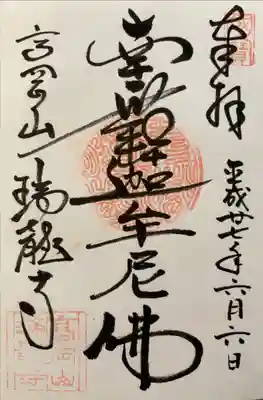 奉拝
平成廿七年六月六日
南無釈迦牟尼佛
高岡山
瑞龍寺